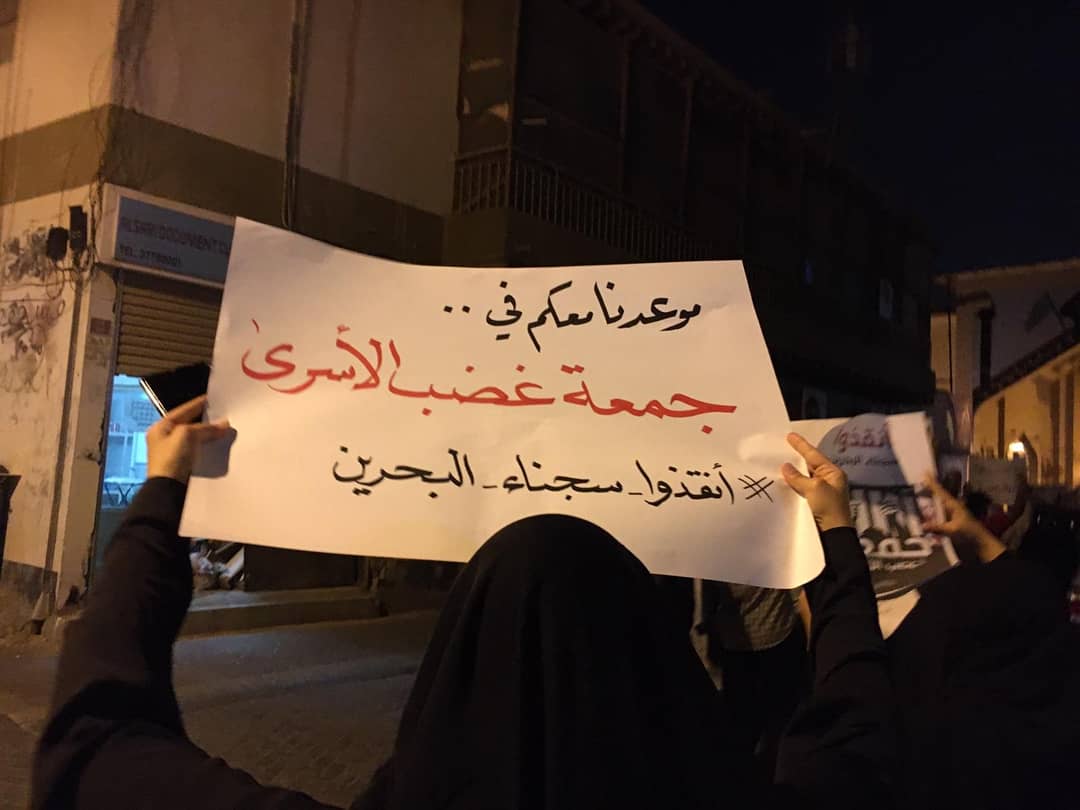 موعدنا معكم في ..
جمعة غضب الأسرى
#أنقذوا_سجناء_البحرين
DOCUMENT
TEL.
أنقذوا